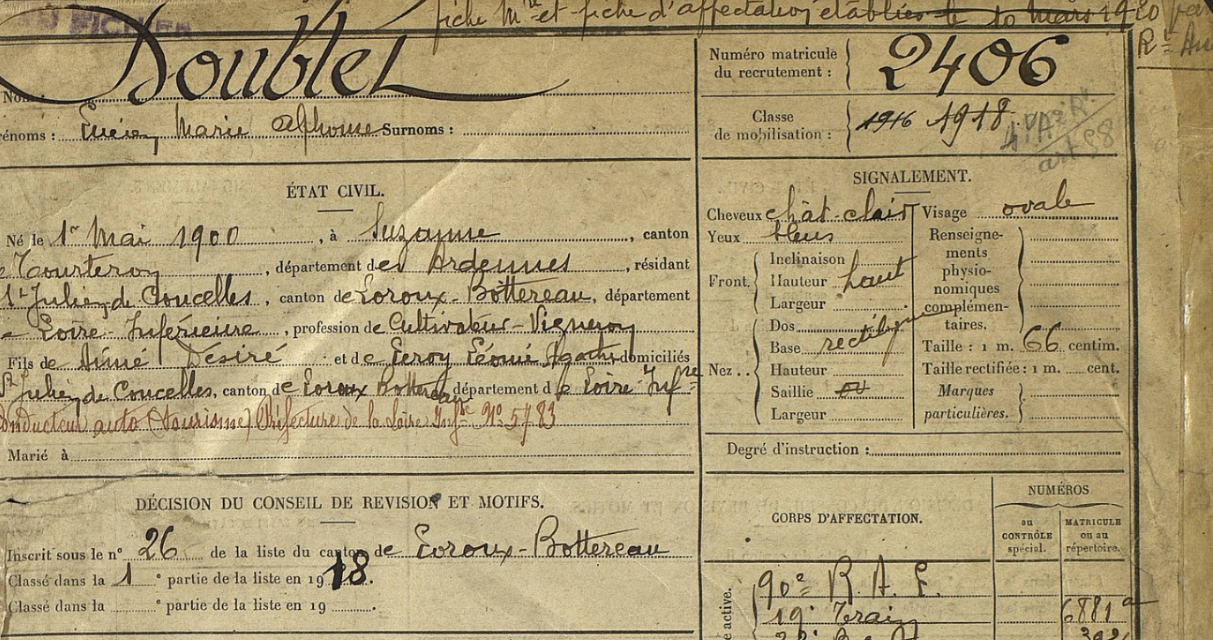 fiche Mle et fiche d'affectation établies le 10 mars 1920
AU FICHIER
Nom: Doublet
Numéro matricule du recrutement : 2406
Prénoms : Lucien Marie Alphonse Surnoms :
Classe de mobilisation : 1916 1918
ÉTAT CIVIL.
Né le 1er Mai 1900, à Suzanne, canton
de Tourteron, département des Ardennes, résidant
St Julien de Concelles, canton de Loroux-Bottereau, département
de Loire-Inférieure, profession de Cultivateur-Vigneron
Fils de Aimé Désiré et de Leroy Léonie Agathe domiciliés
St Julien de Concelles, canton de Loroux Bottereau, département de la Loire-Infre
Conducteur auto (tourisme) Préfecture de la Loire Infre No 5783
Marié à
SIGNALEMENT.
Cheveux chât-clair
Yeux bleus
Front.
Inclinaison
Hauteur haut
Largeur
Nez..
Dos rectiligne
Base
Hauteur
Saillie
Largeur
Visage ovale
Renseignements physionomiques complémentaires.
Taille : 1 m. 66 centim.
Taille rectifiée : 1 m. cent.
Marques particulières.
Degré d'instruction :
DÉCISION DU CONSEIL DE REVISION ET MOTIFS.
Inscrit sous le n° 26 de la liste du canton de Loroux-Bottereau
Classé dans la 1e partie de la liste en 1918.
Classé dans la e partie de la liste en 19 .
CORPS D'AFFECTATION.
NUMÉROS
au CONTRÔLE spécial.
MATRICULE ou au répertoire.
90e R. A. L.
19e Train 6881